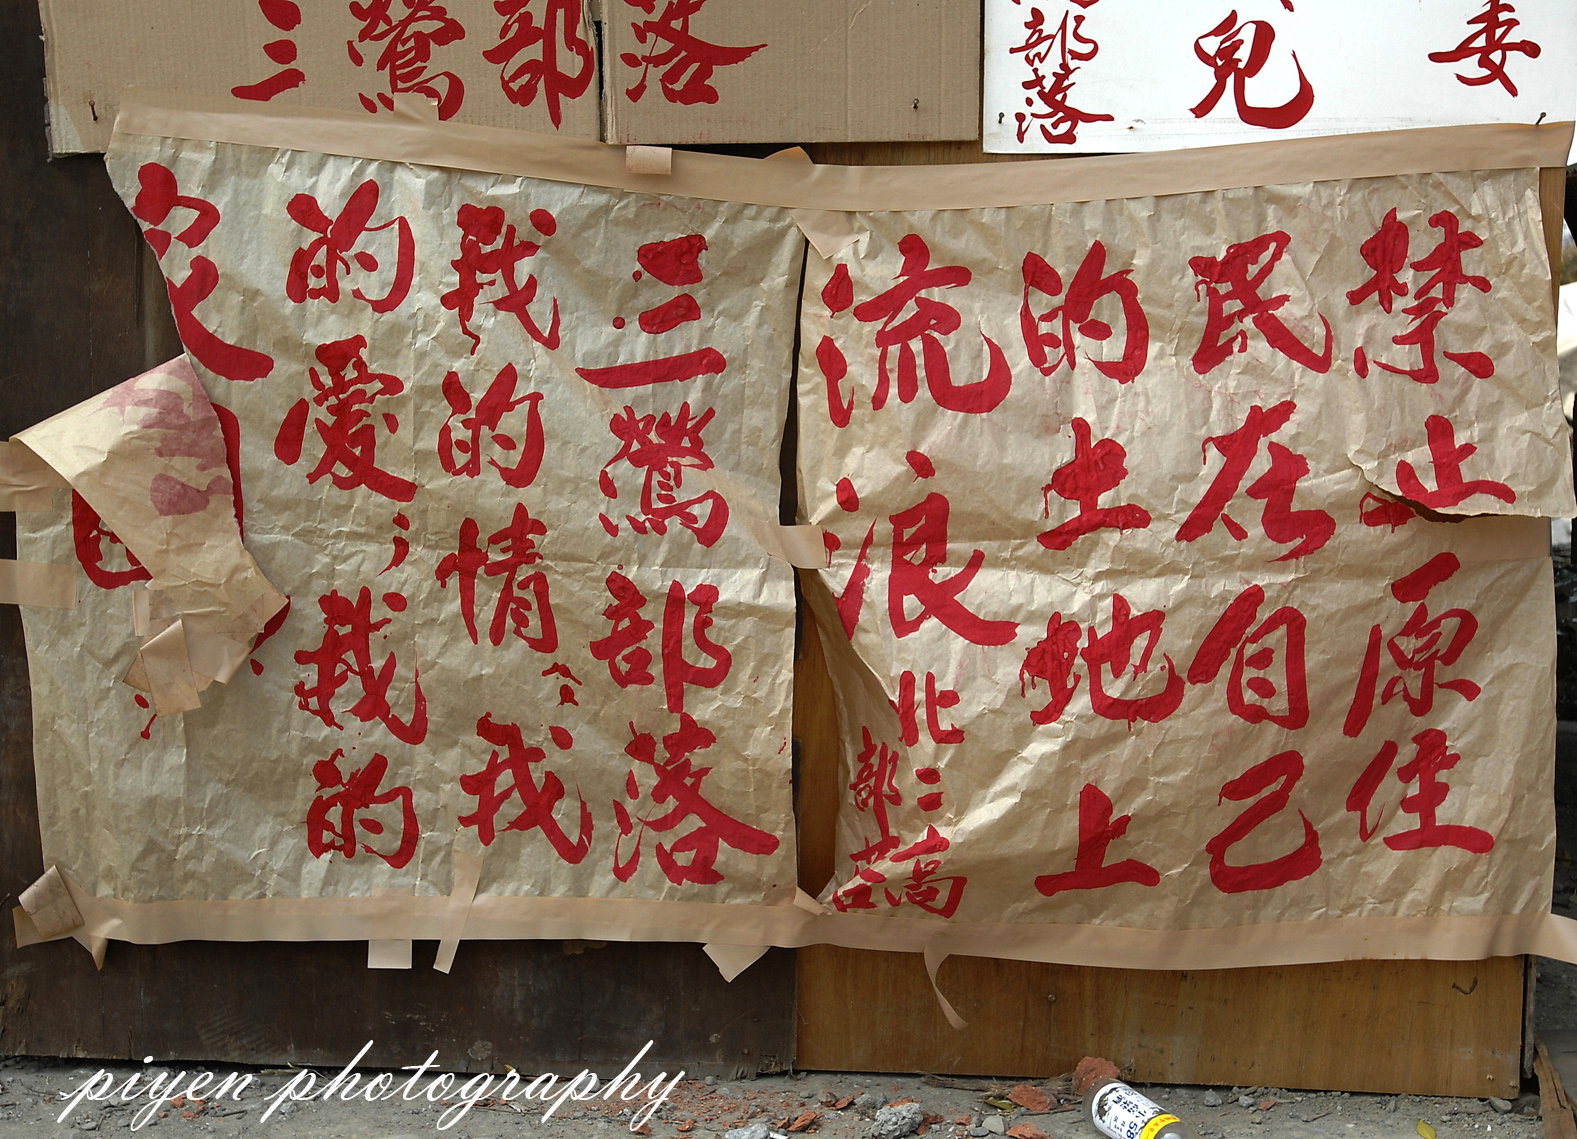 三鶯部落
部落
兒
委
禁止原住
民在自己
的土地上
流浪
北二高
部落
三鶯部落
我的情。我
的愛，我的
家
piyen photography